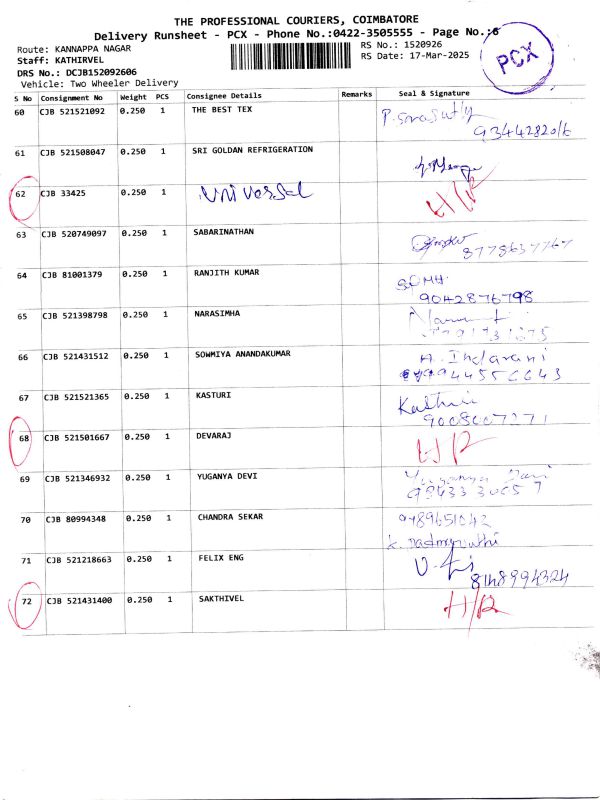 THE PROFESSIONAL COURIERS, COIMBATORE
Delivery Runsheet - PCX - Phone No.:0422-3505555 - Page No.:6
Route: KANNAPPA NAGAR
RS No.: 1520926
Staff: KATHIRVEL
RS Date: 17-Mar-2025
DRS No.: DCJB152092606
PCX
Vehicle: Two Wheeler Delivery
S No Consignment No Weight PCS Consignee Details Remarks Seal & Signature
60 CJB 521521092 0.250 1 THE BEST TEX
61 CJB 521508047 0.250 1 SRI GOLDAN REFRIGERATION
62 CJB 33425 0.250 1 universal H/R
63 CJB 520749097 0.250 1 SABARINATHAN
8778637767
64 CJB 81001379 0.250 1 RANJITH KUMAR
9042876798
65 CJB 521398798 0.250 1 NARASIMHA
66 CJB 521431512 0.250 1 SOWMIYA ANANDKUMAR A. Indarani
67 CJB 521521365 0.250 1 KASTURI
68 CJB 521501667 0.250 1 DEVARAJ H/R
69 CJB 521346932 0.250 1 YUGANYA DEVI
9843330657
70 CJB 80994348 0.250 1 CHANDRA SEKAR 9789651042
71 CJB 521218663 0.250 1 FELIX ENG
8148994324
72 CJB 521431400 0.250 1 SAKTHIVEL H/R